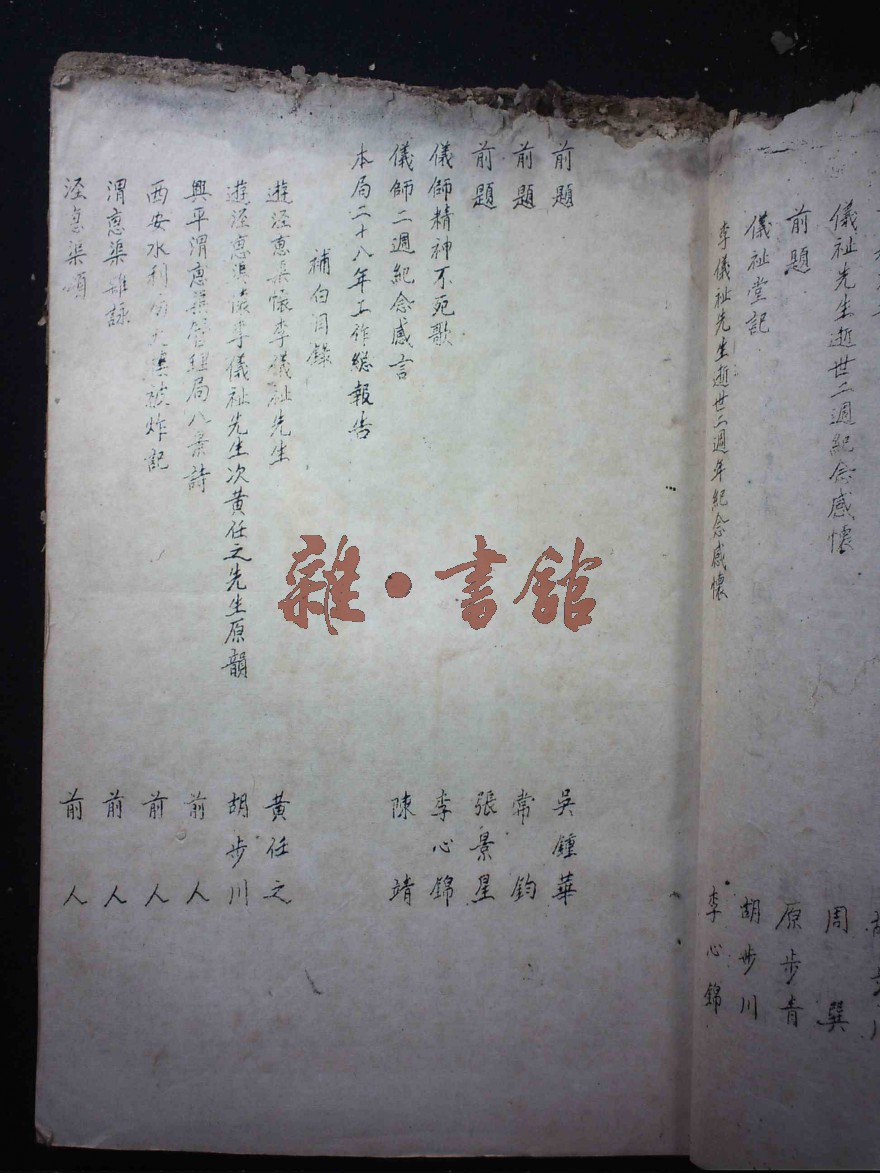 儀祉先生逝世二週紀念感懷 周巽
前題 原步青
儀祉堂記 胡步川
李儀祉先生逝世二週年紀念感懷 李心錦
前題 吳鍾華
前題 常鈞
前題 張景星
儀師精神不死歌 李心錦
儀師二週紀念感言 陳靖
本局二十八年工作總報告
補白目錄
遊涇惠渠懷李儀祉先生 黃任之
遊涇惠渠懷李儀祉先生次黃任之先生原韻 胡步川
興平渭惠渠管理局八景詩 前人
西安水利局大樓被炸記 前人
渭惠渠雜詠 前人
涇惠渠頌 前人
雜·書館